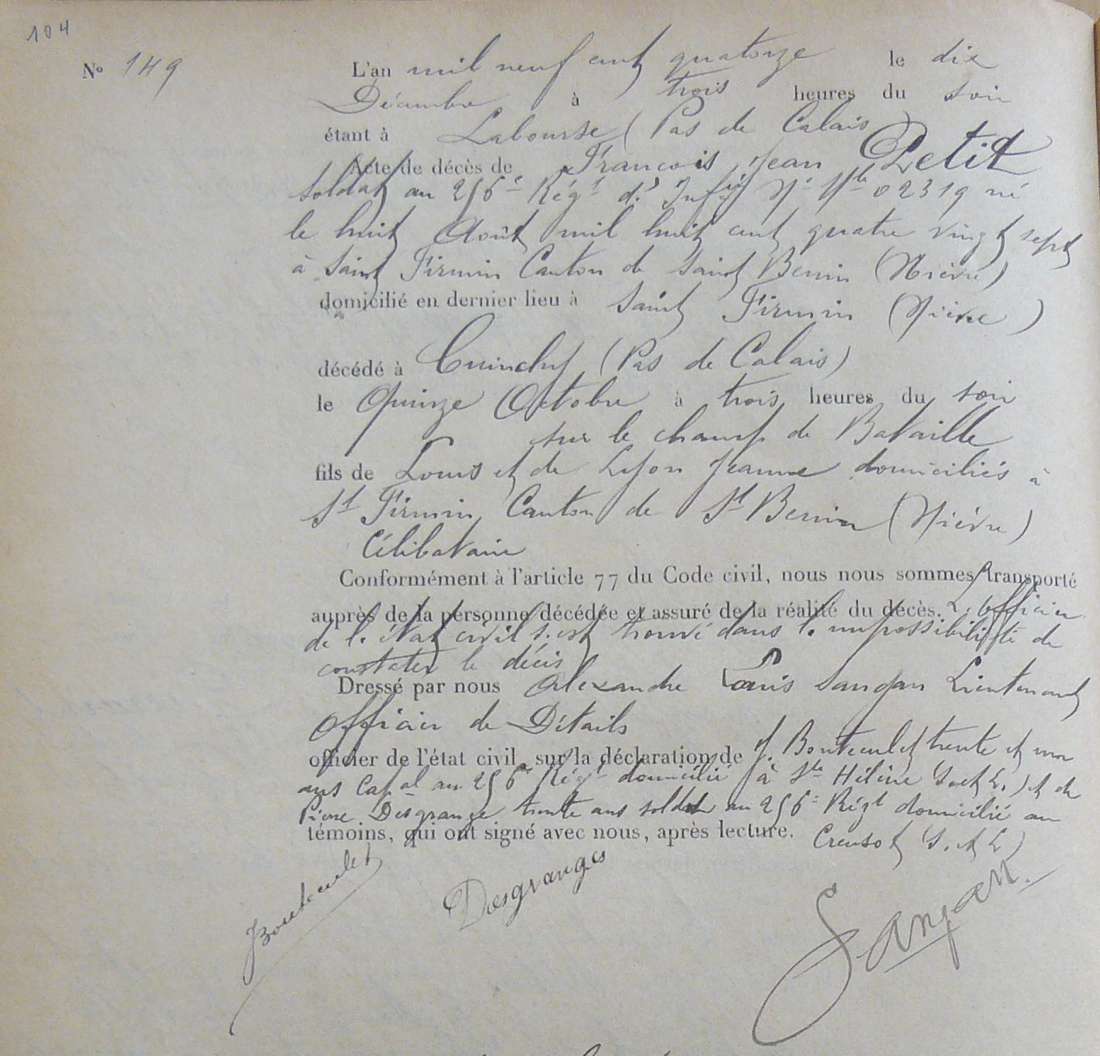 104
N° 149
L'an mil neuf cent quatorze le dix
Décembre à trois heures du soir
étant à Labourse (Pas de Calais)
Acte de décès de François Jean Petit
soldat au 256e Régt d'Infie Nº Mle 02319 né
le huit Août mil huit cent quatre vingt sept
à Saint Firmin Canton de Saint Benin (Nièvre)
domicilié en dernier lieu à Saint Firmin (Nièvre)
décédé à Cuinchy (Pas de Calais)
le Quinze Octobre à trois heures du soir
sur le champ de Bataille
fils de Louis et de Lyon Jeanne domiciliés à
St Firmin Canton de St Benin (Nièvre)
Célibataire
Conformément à l'article 77 du Code civil, nous nous sommes transporté
auprès de la personne décédée et assuré de la réalité du décès. L'officier
de l'état civil s'est trouvé dans l'impossibilité de
constater le décès
Dressé par nous Alexandre Louis Sanjan Lieutenant
Officier de Détails
officier de l'état civil, sur la déclaration de J. Bouteculet trente et un
ans Capal au 256e Régt domicilié à Ste Hélène (S. et L.) et de
Pierre Desgrange trente ans soldat au 256e Régt domicilié au
témoins, qui ont signé avec nous, après lecture. Creusot (S. et L)
Desgranges
Sanjan